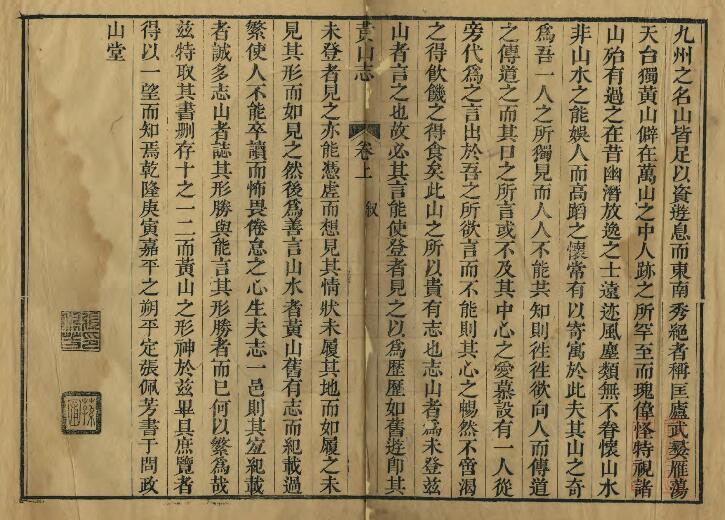 九州之名山皆足以資遊息而東南秀絕者稱匡廬武夷雁蕩
天台獨黃山僻在萬山之中人跡之所罕至而瑰偉怪特視諸
山殆有過之在昔幽潛放逸之士遠迹風塵類無不眷懷山水
非山水之能娛人而高蹈之懷常有以寄寓於此夫其山之奇
爲吾一人之所獨見而人人不能共知則徃徃欲向人而傳道
之傳道之而其口之所言或不及其中心之愛慕設有一人從
旁代爲之言出於吾之所欲言而不能則其心之暢然不啻渴
之得飲饑之得食矣此山之所以貴有志也志山者爲未登兹
山者言之也故必其言能使登者見之以爲歷歷如舊遊卽其
黃山志 卷上 叙
未登者見之亦能憑虛而想見其情狀未履其地而如履之未
見其形而如見之然後爲善言山水者黃山舊有志而紀載過
繁使人不能卒讀而怖畏倦怠之心生夫志一邑則其宜紀載
者誠多志山者誌其形勝與能言其形勝者而已何以繁爲哉
兹特取其書删存十之一二而黃山之形神於兹畢具庶覽者
得以一望而知焉乾隆庚寅嘉平之朔平定張佩芳書于問政
山堂